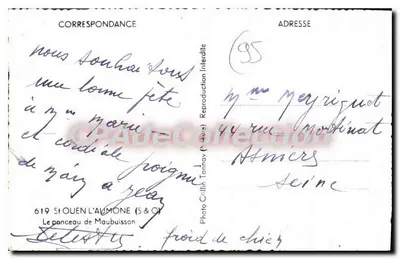 CORRESPONDANCE
ADRESSE
95
nous souhaitons
une bonne fête
à Mme marie
et cordiale poignée
de main a Jean
619 St OUEN L'AUMONE (S & O)
Le ponceau de Maubuisson
froid de chien
Reproduction Interdite
Photo Collin
Mme Meyrignat
44 rue
Asnières
Seine
CPA de Collection